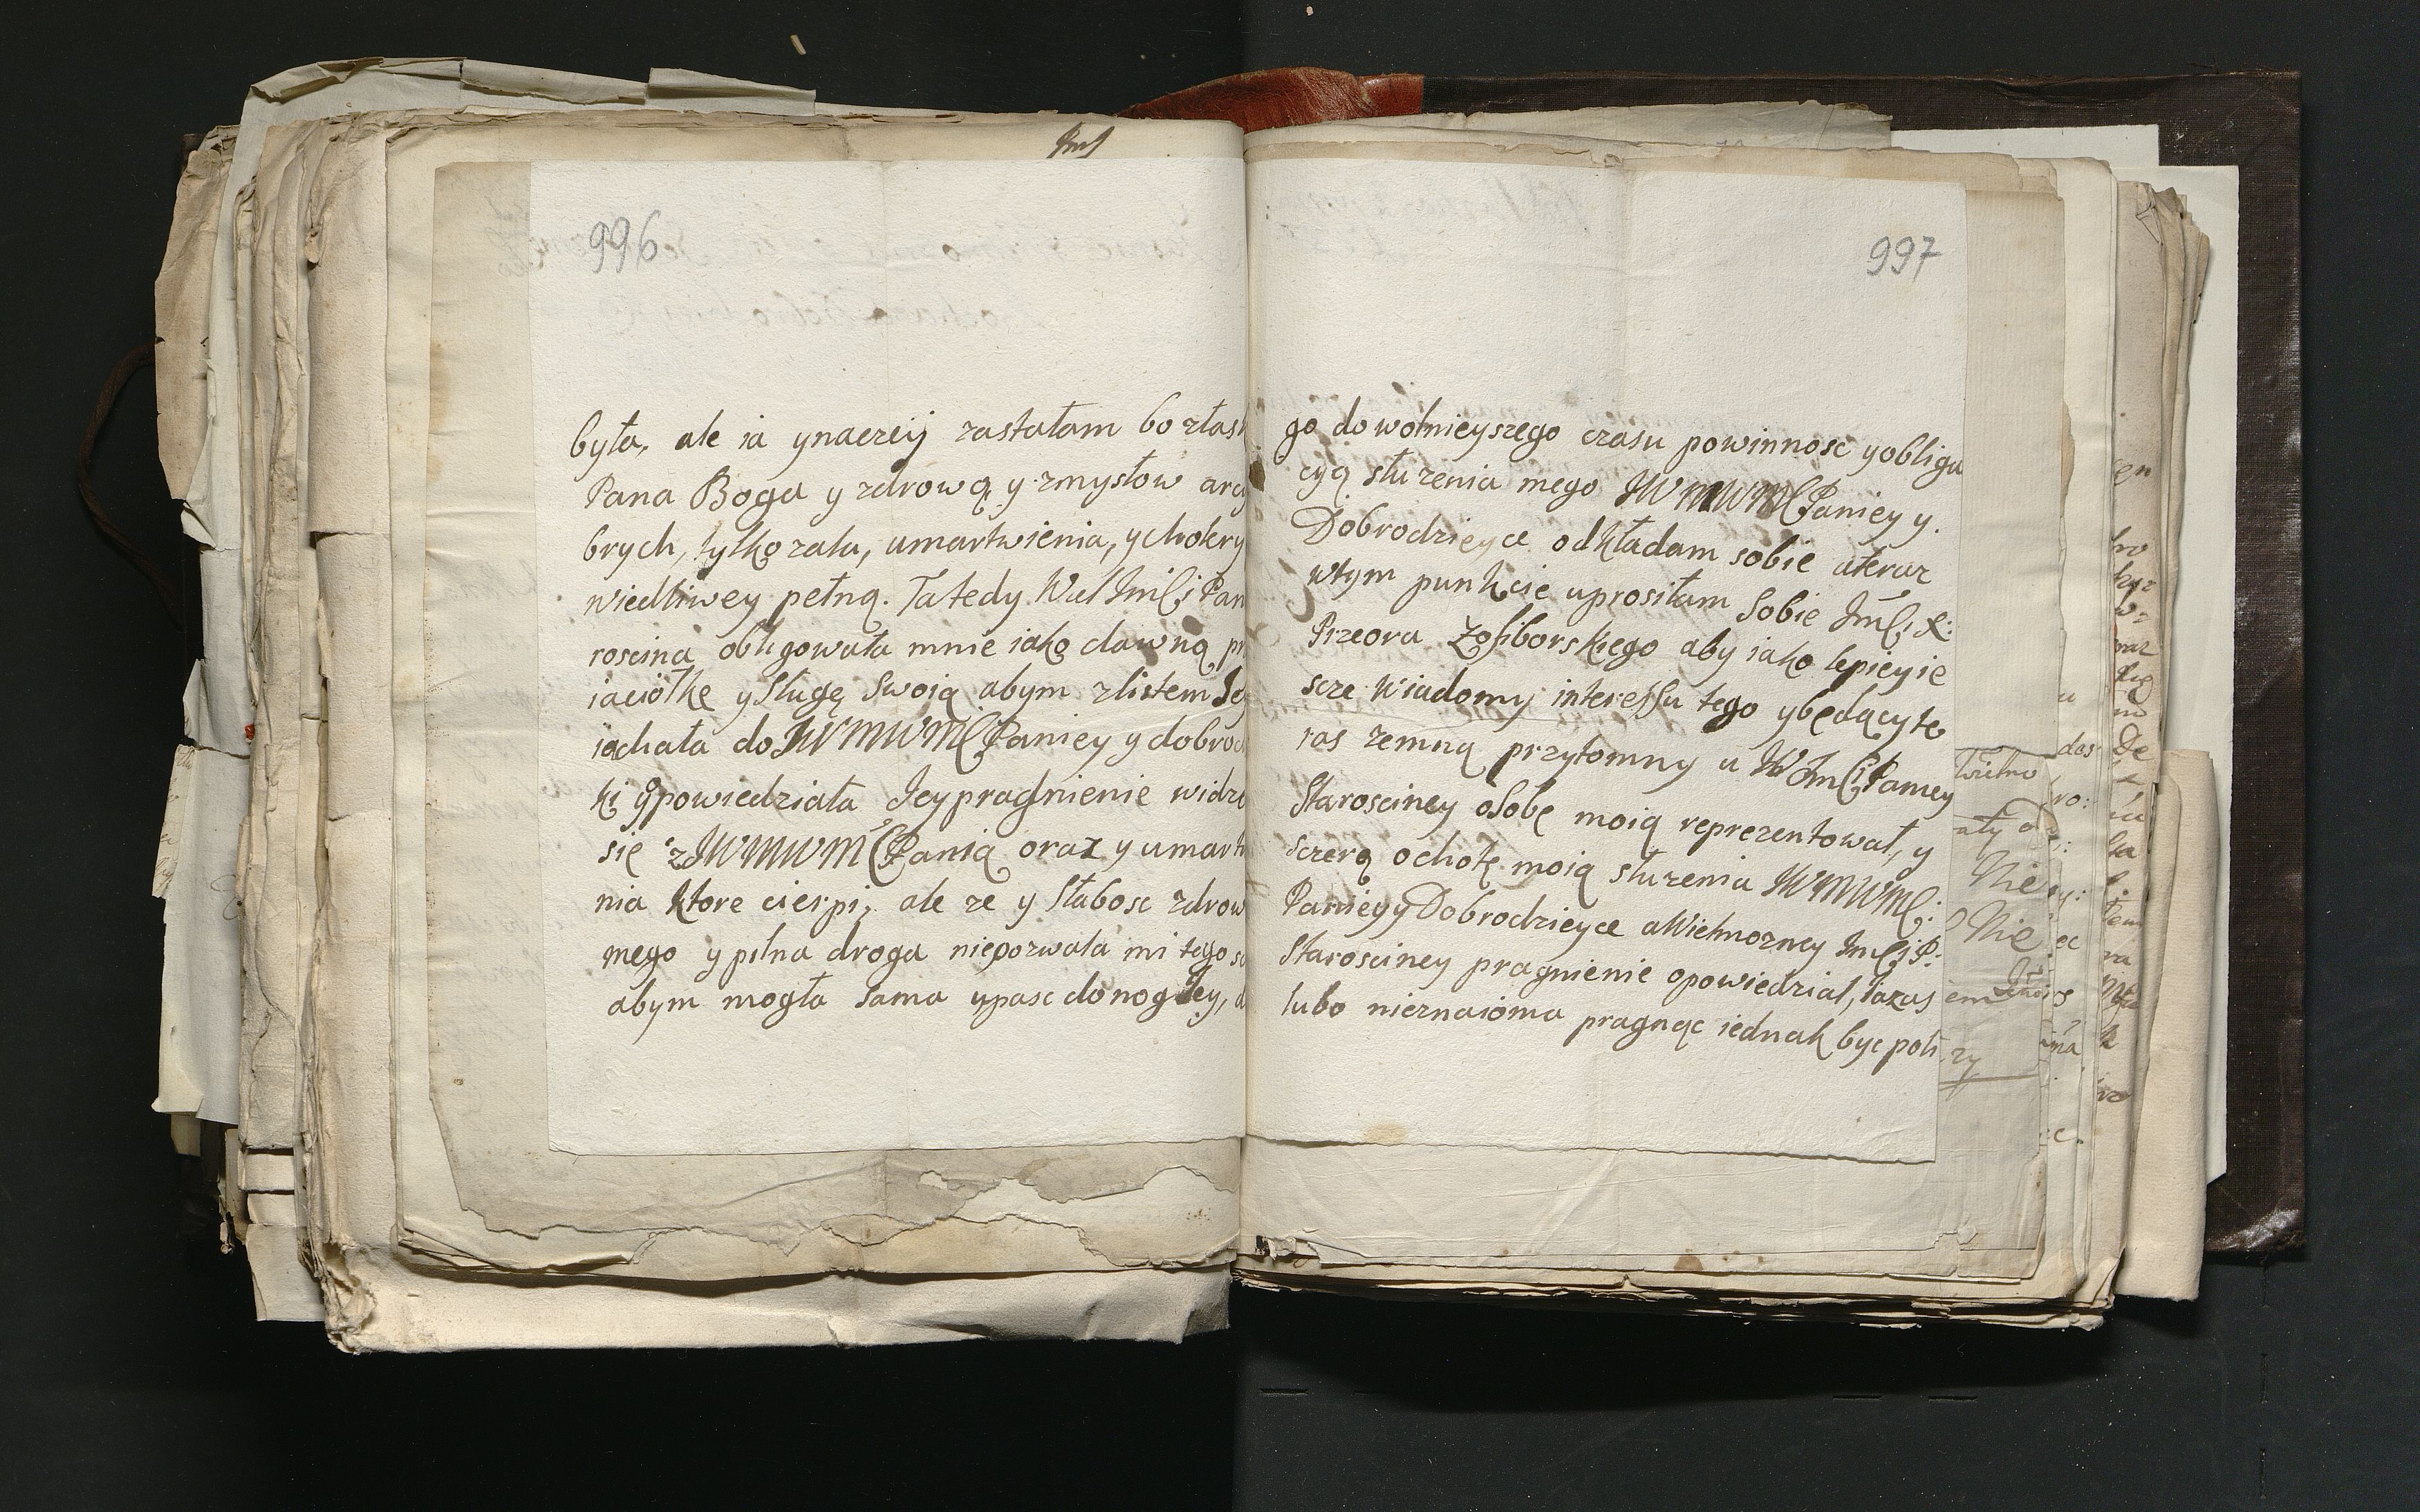 996
była, ale ia ynaczeij zastałam bo złask
Pana Boga y zdrową y zmysłow arcy
brych, tylko zalu, umartwienia, ycholery
wiedliwey pełną. Ta tedy Wiel ImCi Pan
roscina obligowała mnie iako dawną pr
iaciołkę y Sługę Swoią abym zlistem Je
iachała do JWMWMC Paniey y dobrod
ki ypowiedziała Jey pragnienie widze
się z JWMWMC Panią oraz y umartw
nia ktore cierpi, ale ze y Słabosc zdrow
mego y pilna droga niepozwala mi tego
abym mogła Sama upasc donog Jey, d
997
go do wolnieyszego czasu powinnosc yobliga
cyą słuzenia mego JWMWMC Paniey y
Dobrodzieyce odkładam sobie ateraz
wtym punkcie uprosiłam Sobie ImCi X:
Przeora Zosiborskiego aby iako lepiey ie
scze wiadomy interessu tego ybędący te
ras zemną przytomny u W ImCi Paniey
Starosciney osobę moią reprezentował, y
sczerą ochotę moią słuzenia JWMWMC:
Paniey y Dobrodzieyce aWielmozney ImCi P:
Starosciney pragnienie opowiedział, Jazas
lubo nieznaioma pragnąc iednak byc poli